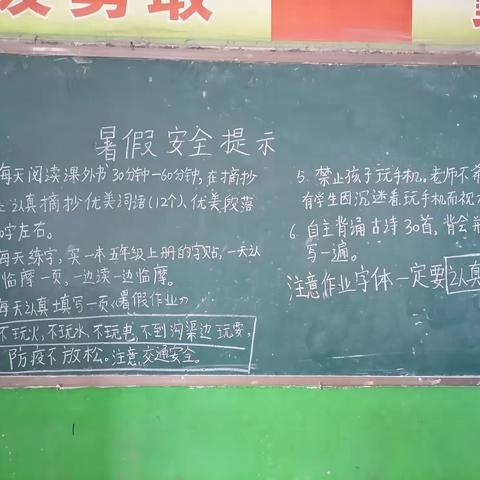 发勇敢
暑假安全提示
每天阅读课外书30分钟-60分钟,在摘抄
上认真摘抄优美词语(12个)、优美段落
0字左右。
每天练字,买一本五年级上册的字帖,一天认
临摩一页,一边读一边临摩。
每天认真填写一页《暑假作业》
不玩火,不玩水,不玩电,不到沟渠边玩耍,
防疫不放松。注意交通安全。
5、禁止孩子玩手机。老师不希
有学生因沉迷看玩手机而视力
6、自主背诵古诗30首,背会并
写一遍。
注意作业字体一定要认真